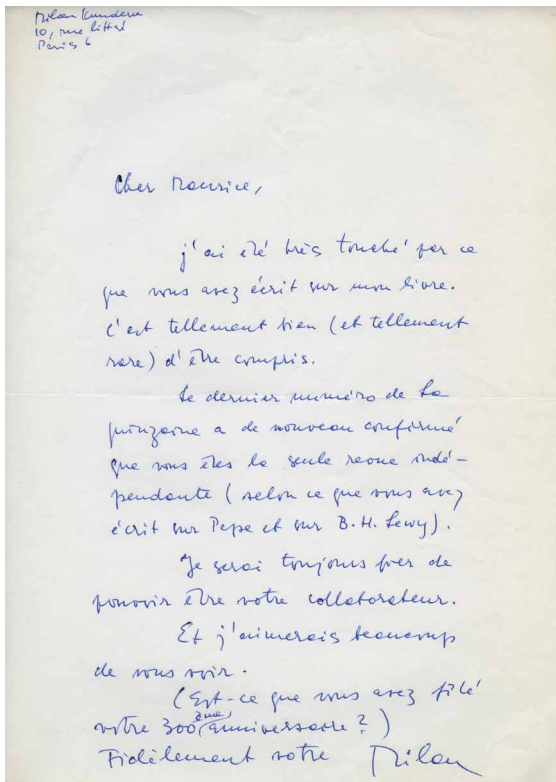 Milan Kundera
10, rue Littré
Paris 6
Cher Maurice,
j'ai été très touché par ce
que vous avez écrit sur mon livre.
C'est tellement bien (et tellement
rare) d'être compris.
Le dernier numéro de La
quinzaine a de nouveau confirmé
que vous êtes la seule revue indé-
pendante (selon ce que vous avez
écrit sur Pepe et sur B.H. Lewy).
Je serai toujours fier de
pouvoir être votre collaborateur.
Et j'aimerais beaucoup
de vous voir.
(Est-ce que vous avez fêté
votre 300ème anniversaire?)
Fidèlement votre Milan